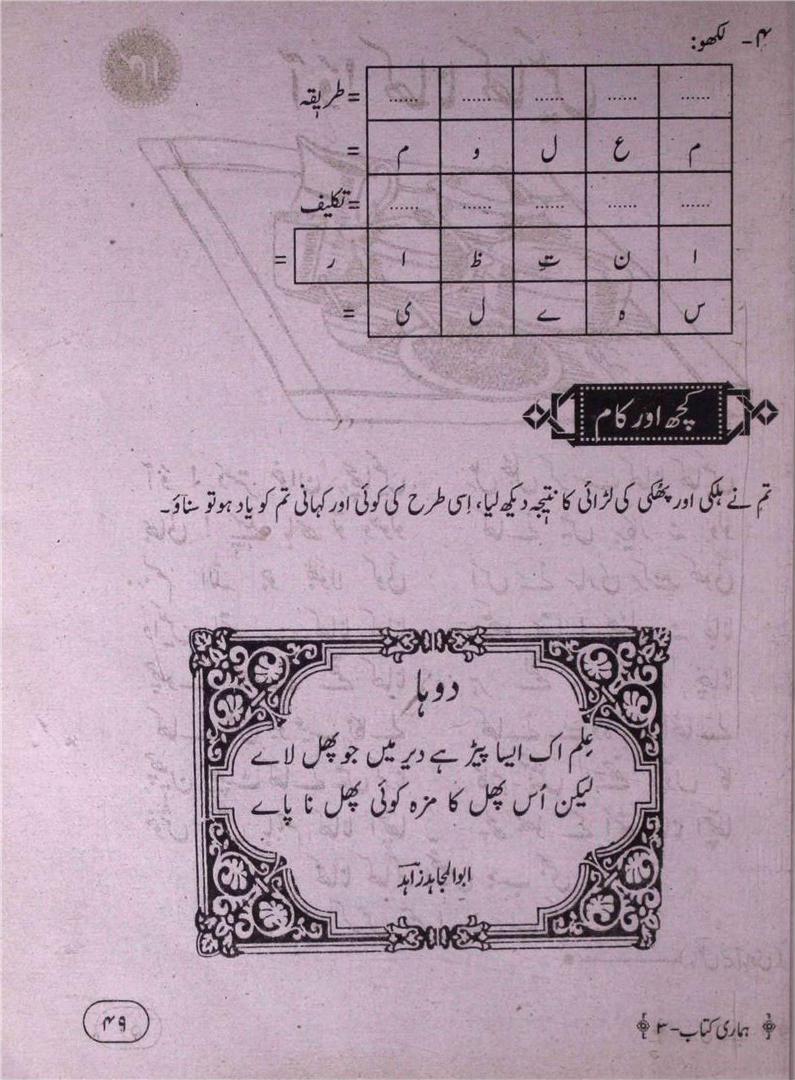 ۴- لکھو:
...... ...... ...... ...... ...... = طریقہ
م ع ل و م =
...... ...... ...... ...... ...... = تکلیف
ا ن تِ ظ ا ر =
س ہ ے ل ی =
کچھ اور کام
تم نے ہلکی اور پھلکی کی لڑائی کا نتیجہ دیکھ لیا، اِسی طرح کی کوئی اور کہانی تم کو یاد ہو تو سناؤ۔
دوہا
عِلم اک ایسا پیڑ ہے دیر میں جو پھل لاے
لیکن اُس پھل کا مزہ کوئی پھل نا پاے
ابوالمجاہد زاہد
ہماری کتاب-۳
۴۹